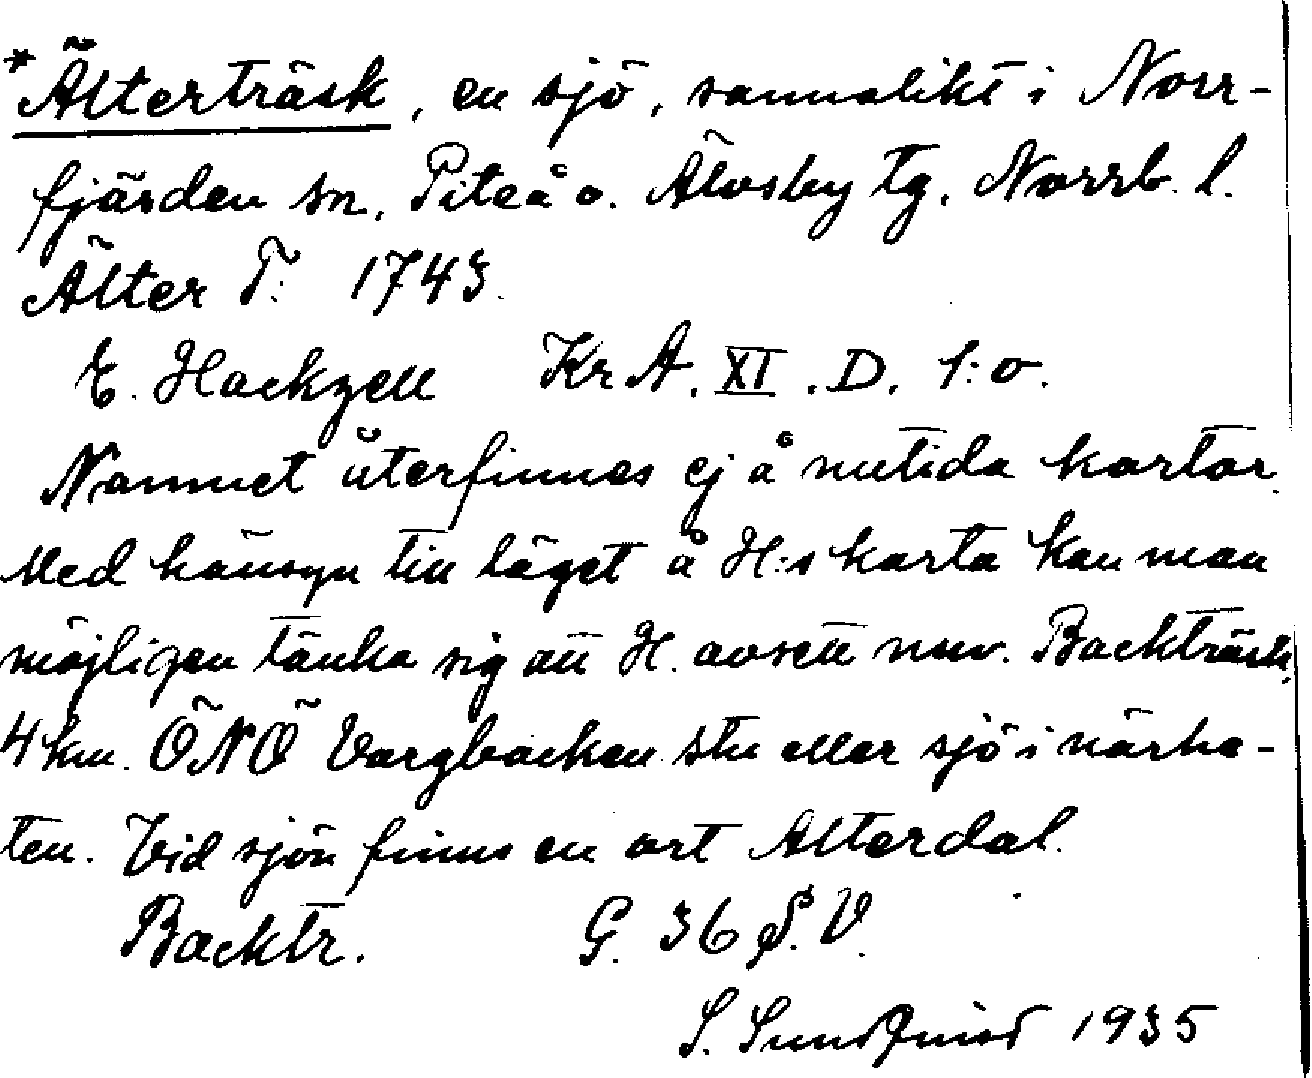 *Älterträsk, en sjö, sannolikt i Norr-
fjärden sn, Piteå o. Älvsby tg, Norrb. l.
Älter T: 1743.
E. Hackzell KrA. XI. D. 1:o.
Namnet återfinnes ej å nutida kartor.
Med hänsyn till läget å H:s karta kan man
möjligen tänka sig att H. avsett nuv. Backträsk,
4 km. ÖNÖ Vargbacken stn eller sjö i närhe-
ten. Vid sjön finns en ort Alterdal.
Backtr. G. 36 S. V.
S. Sundqvist 1935